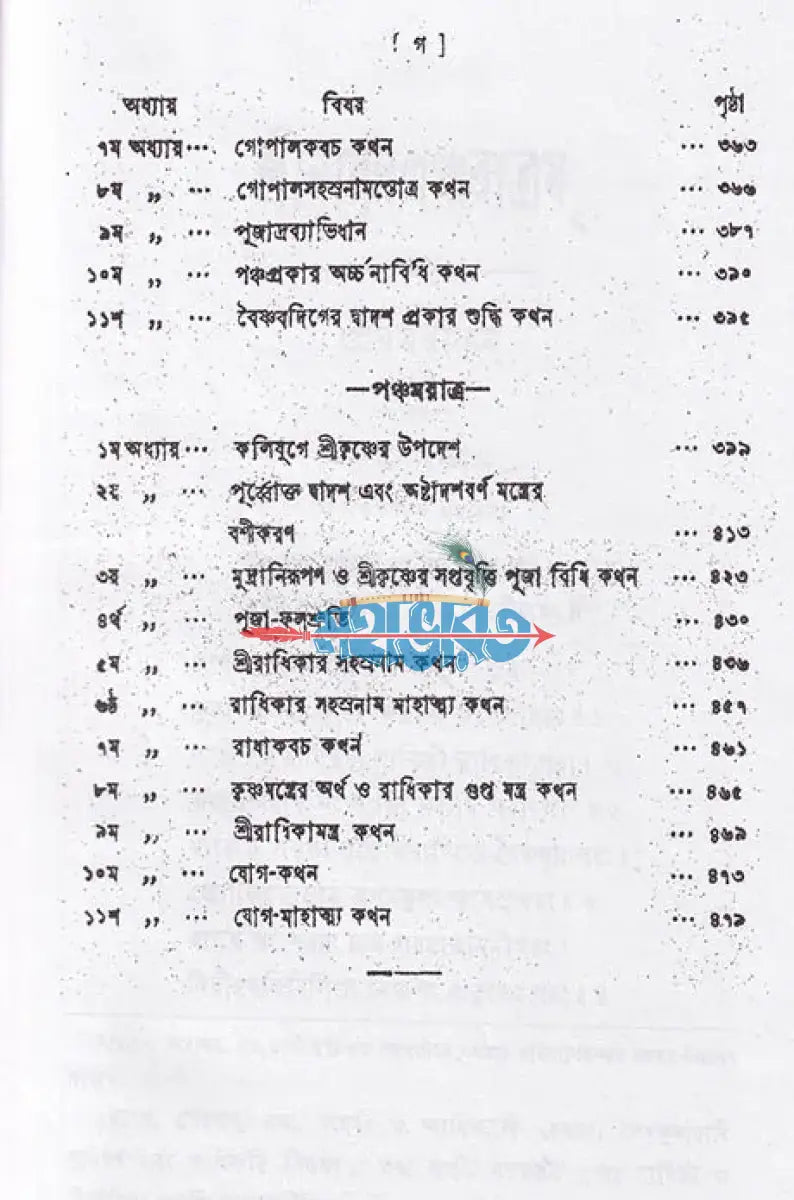 [ গ ]
অধ্যায় বিষয় পৃষ্ঠা
৭ম অধ্যায় ··· গোপালকবচ কথন ··· ৩৬৩
৮ম ,, ··· গোপালসহস্রনামস্তোত্র কথন ··· ৩৬৬
৯ম ,, ··· পূজাদ্রব্যাভিধান ··· ৩৮৭
১০ম ,, ··· পঞ্চপ্রকার অর্চ্চনাবিধি কথন ··· ৩৯০
১১শ ,, ··· বৈষ্ণবদিগের দ্বাদশ প্রকার শুদ্ধি কথন ··· ৩৯৫
—পঞ্চমরাত্র—
১ম অধ্যায় ··· কলিযুগে শ্রীকৃষ্ণের উপদেশ ··· ৩৯৯
২য় ,, ··· পূর্ব্বোক্ত দ্বাদশ এবং অষ্টাদশবর্ণ মন্ত্রের
বশীকরণ ··· ৪১৩
৩য় ,, ··· মুদ্রানিরূপণ ও শ্রীকৃষ্ণের সপ্তবৃত্তি পূজা বিধি কথন ··· ৪২৩
৪র্থ ,, ··· পূজা-ফলশ্রুতি ··· ৪৩০
মহাভারত
৫ম ,, ··· শ্রীরাধিকার সহস্রনাম কথন ··· ৪৩৬
৬ষ্ঠ ,, ··· রাধিকার সহস্রনাম মাহাত্ম্য কথন ··· ৪৫৭
৭ম ,, ··· রাধাকবচ কথন ··· ৪৬১
৮ম ,, ··· কৃষ্ণমন্ত্রের অর্থ ও রাধিকার গুপ্ত মন্ত্র কথন ··· ৪৬৫
৯ম ,, ··· শ্রীরাধিকামন্ত্র কথন ··· ৪৬৯
১০ম ,, ··· যোগ-কথন ··· ৪৭৩
১১শ ,, ··· যোগ-মাহাত্ম্য কথন ··· ৪৭৯